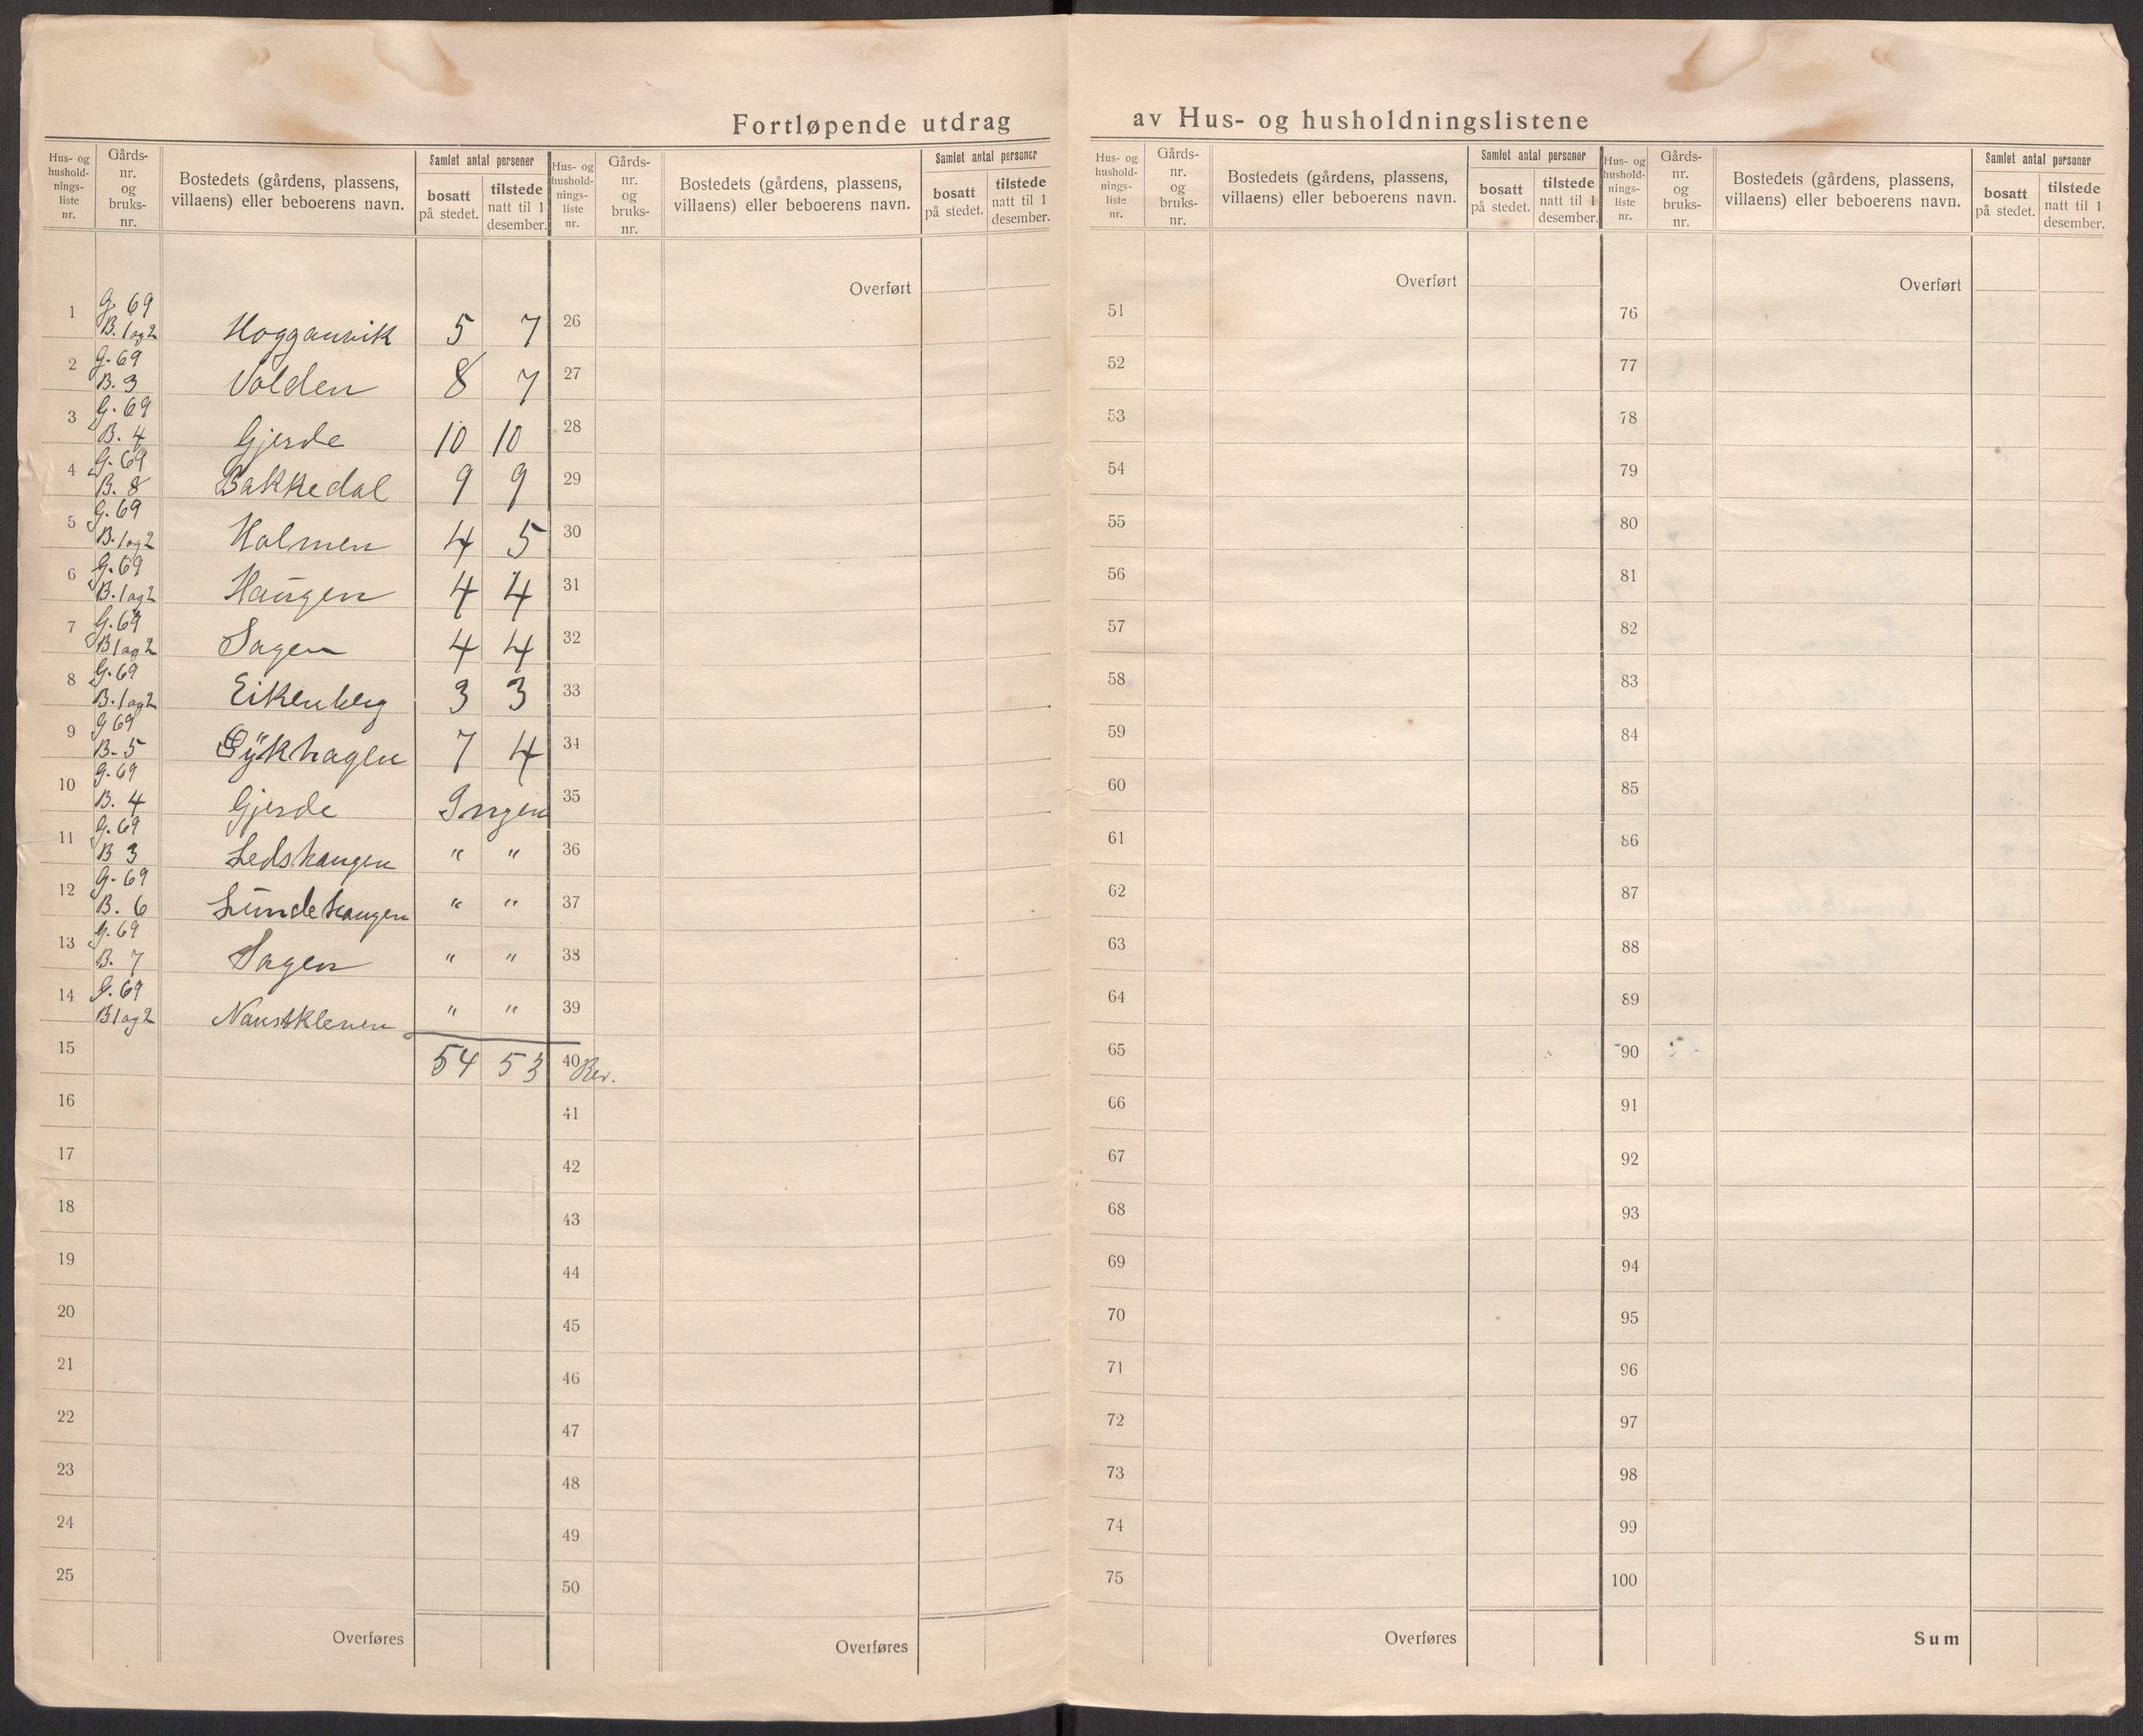 Fortløpende utdrag av Hus- og husholdningslistene
Hus- og
hushold-
nings-
liste
nr.
Gårds-
nr.
og
bruks-
nr.
Bostedets (gårdens, plassens,
villaens) eller beboerens navn.
Samlet antal personer
bosatt
på stedet.
tilstede
natt til 1
desember.
1 G. 69 B. 1 og 2 Hogganvik 5 7
2 G. 69 B. 3 Volden 8 7
3 G. 69 B. 4 Gjerde 10 10
4 G. 69 B. 8 Bakkedal 9 9
5 G. 69 B. 1 og 2 Holmen 4 5
6 G. 69 B. 1 og 2 Haugen 4 4
7 G. 69 B 1 og 2 Sagen 4 4
8 G. 69 B. 1 og 2 Eikenberg 3 3
9 G 69 B- 5 7 4
10 G. 69 B. 4 Gjerde Ingen
11 G. 69 B 3 Ledshaugen " "
12 G- 69 B. 6 Lundehaugen " "
13 G. 69 B. 7 Sagen " "
14 G. 69 B 1 og 2 Naustkleven " "
15 54 53 Rev.
16
17
18
19
20
21
22
23
24
25
Overføres
Hus- og
hushold-
nings-
liste
nr.
Gårds-
nr.
og
bruks-
nr.
Bostedets (gårdens, plassens,
villaens) eller beboerens navn.
Samlet antal personer
bosatt
på stedet.
tilstede
natt til 1
desember.
Overført
26
27
28
29
30
31
32
33
34
35
36
37
38
39
40
41
42
43
44
45
46
47
48
49
50
Overføres
Hus- og
hushold-
nings-
liste
nr.
Gårds-
nr.
og
bruks-
nr.
Bostedets (gårdens, plassens,
villaens) eller beboerens navn.
Samlet antal personer
bosatt
på stedet.
tilstede
natt til 1
desember.
Overført
51
52
53
54
55
56
57
58
59
60
61
62
63
64
65
66
67
68
69
70
71
72
73
74
75
Overføres
Hus- og
hushold-
nings-
liste
nr.
Gårds-
nr.
og
bruks-
nr.
Bostedets (gårdens, plassens,
villaens) eller beboerens navn.
Samlet antal personer
bosatt
på stedet.
tilstede
natt til 1
desember.
Overført
76
77
78
79
80
81
82
83
84
85
86
87
88
89
90
91
92
93
94
95
96
97
98
99
100
Sum